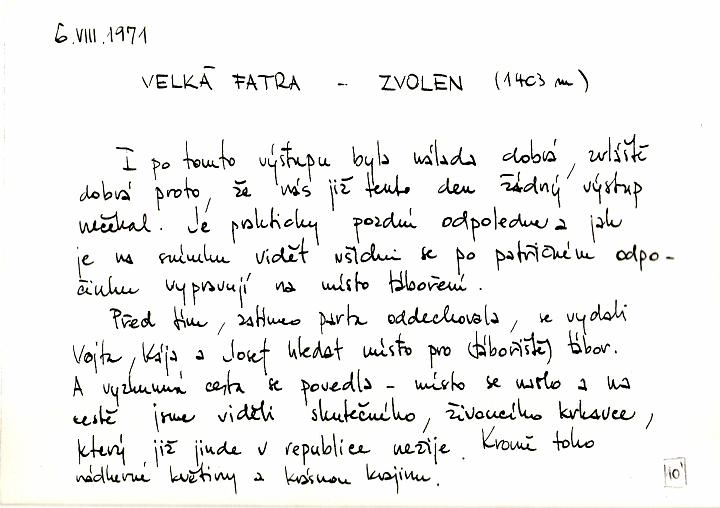 6.VIII.1971
VELKÁ FATRA - ZVOLEN (1403 m)
I po tomto výstupu byla nálada dobrá, zvláště
dobrá proto, že nás již tento den žádný výstup
nečekal. Je prakticky pozdní odpoledne a jak
je na snímku vidět všichni se po patřičném odpo-
činku vypravují na místo táboření.
Před tím, zatímco parta oddechovala, se vydali
Vojta, Kája a Josef hledat místo pro (tábořiště) tábor.
A výzkumná cesta se povedla - místo se našlo a na
cestě jsme viděli skutečného, živoucího krkavce,
který již jinde v republice nežije. Kromě toho
nádherné květiny a krásnou krajinu.
10'